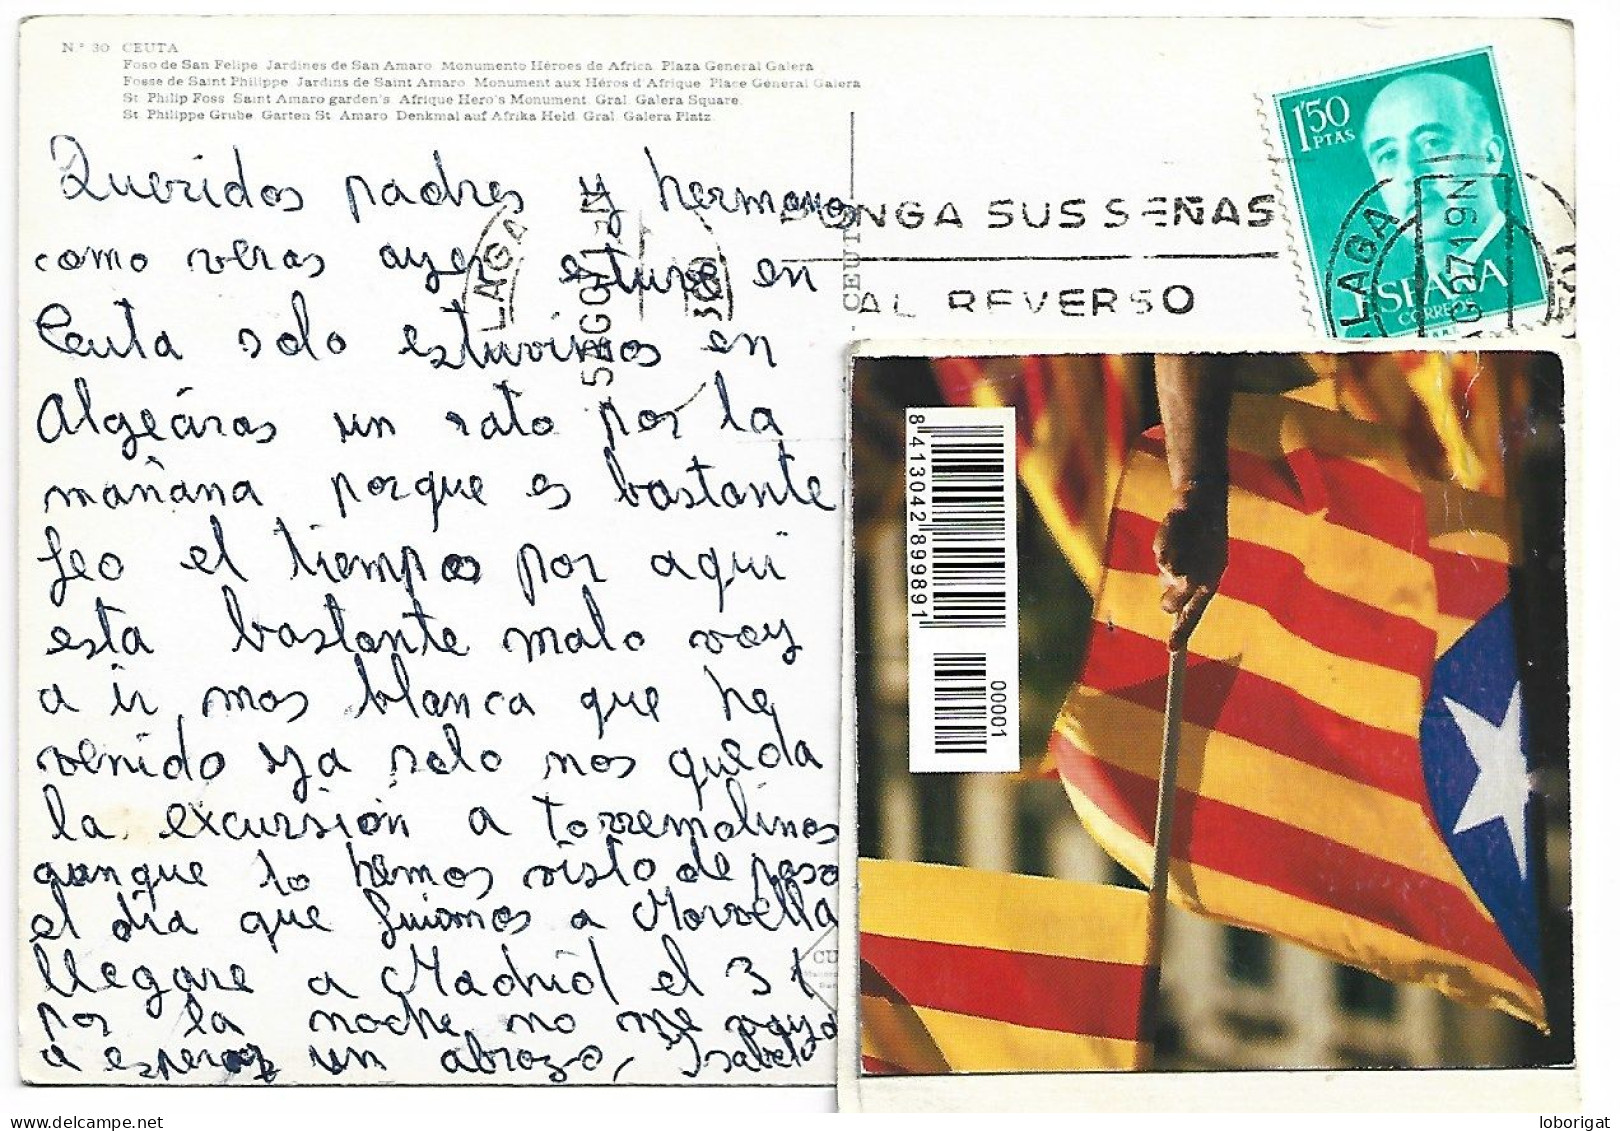 N.º 30 CEUTA
Foso de San Felipe Jardines de San Amaro Monumento Héroes de Africa Plaza General Galera
Fosse de Saint Philippe Jardins de Saint Amaro Monument aux Héros d'Afrique Place Général Galera
St. Philip Foss Saint Amaro garden's Afrique Hero's Monument. Gral. Galera Square.
St. Philippe Grube Garten St. Amaro Denkmal auf Afrika Held Gral. Galera Platz.
Queridos padres y hermanos
como veras ayer estuve en
Ceuta solo estuvimos en
Algeciras un rato por la
mañana porque es bastante
feo el tiempo por aqui
esta bastante malo voy
a ir mas blanca que he
venido ya solo nos queda
la excursión a Torremolinos
aunque lo hemos visto de paso
el día que fuimos a Marvella
llegare a Madrid el 31
por la noche no me vayais
a esperar un abrazo, Isabel
PONGA SUS SEÑAS
AL REVERSO
1'50
PTAS
ESPAÑA
CORREOS
CEUT
CU
8 413042 899891
00001
loborigat